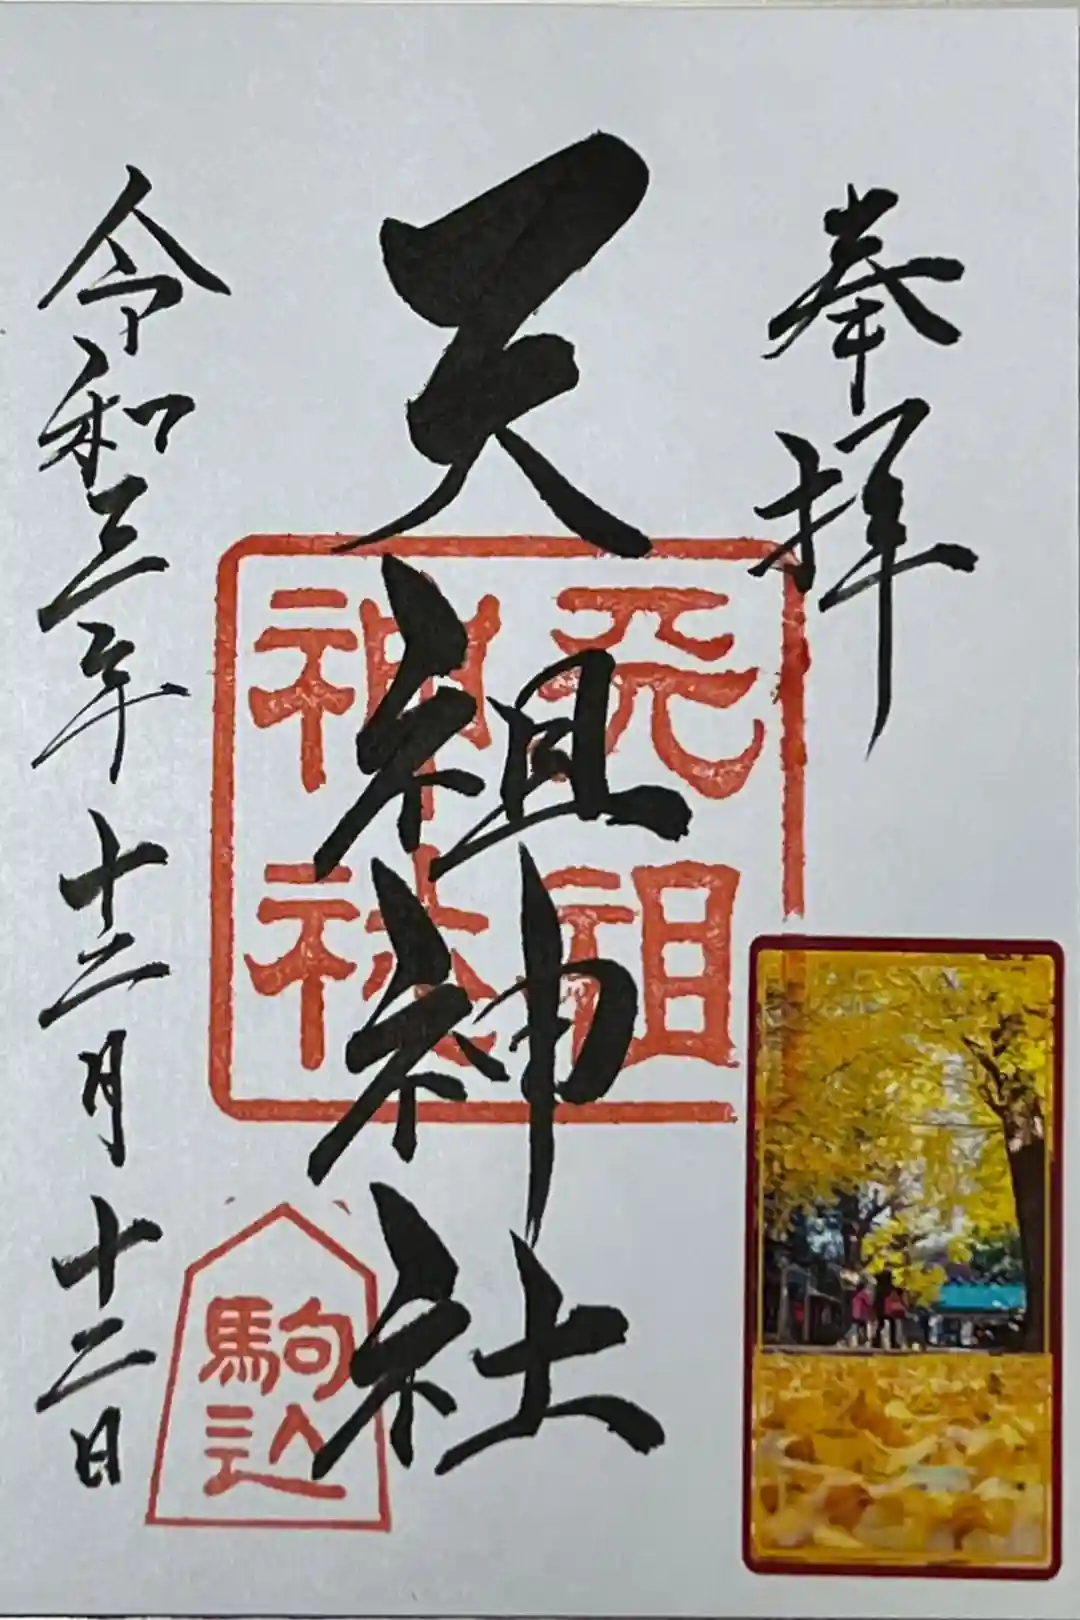 奉拝
天祖神社
天祖
神社
駒込
令和三年十二月十二日